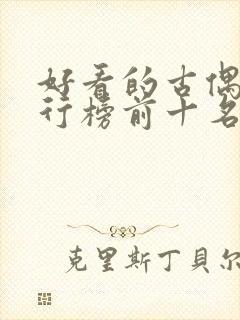 好看的古偶
行榜前十名
克里斯丁贝尔